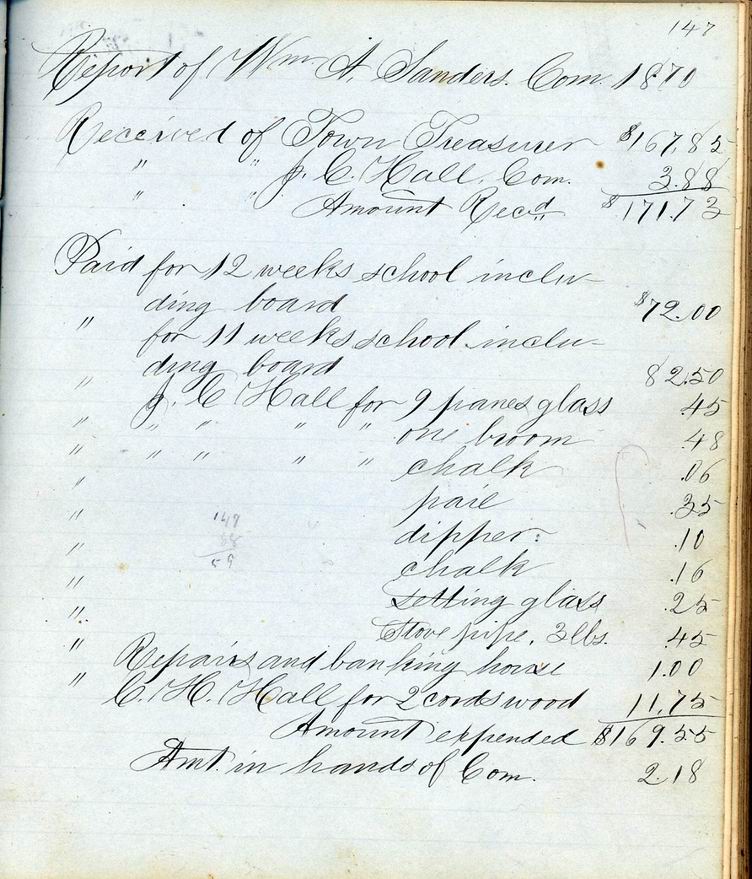 147
Report of Wm A. Sanders. Com. 1870
Received of Town Treasurer $167.85
" " J. C. Hall, Com. 3.88
" " Amount Recd $171.73
Paid for 12 weeks school inclu-
ding board $72.00
" for 11 weeks school inclu-
ding board 82.50
" J. C Hall for 9 panes glass .45
" " " " " one broom .48
" " " " " chalk .06
" pail .35
" dipper .10
" chalk .16
" setting glass .25
" Stove pipe. 3 lbs. .45
" Repairs and banking house 1.00
" C. H. Hall for 2 cords wood 11.75
Amount expended $169.55
Amt. in hands of Com. 2.18